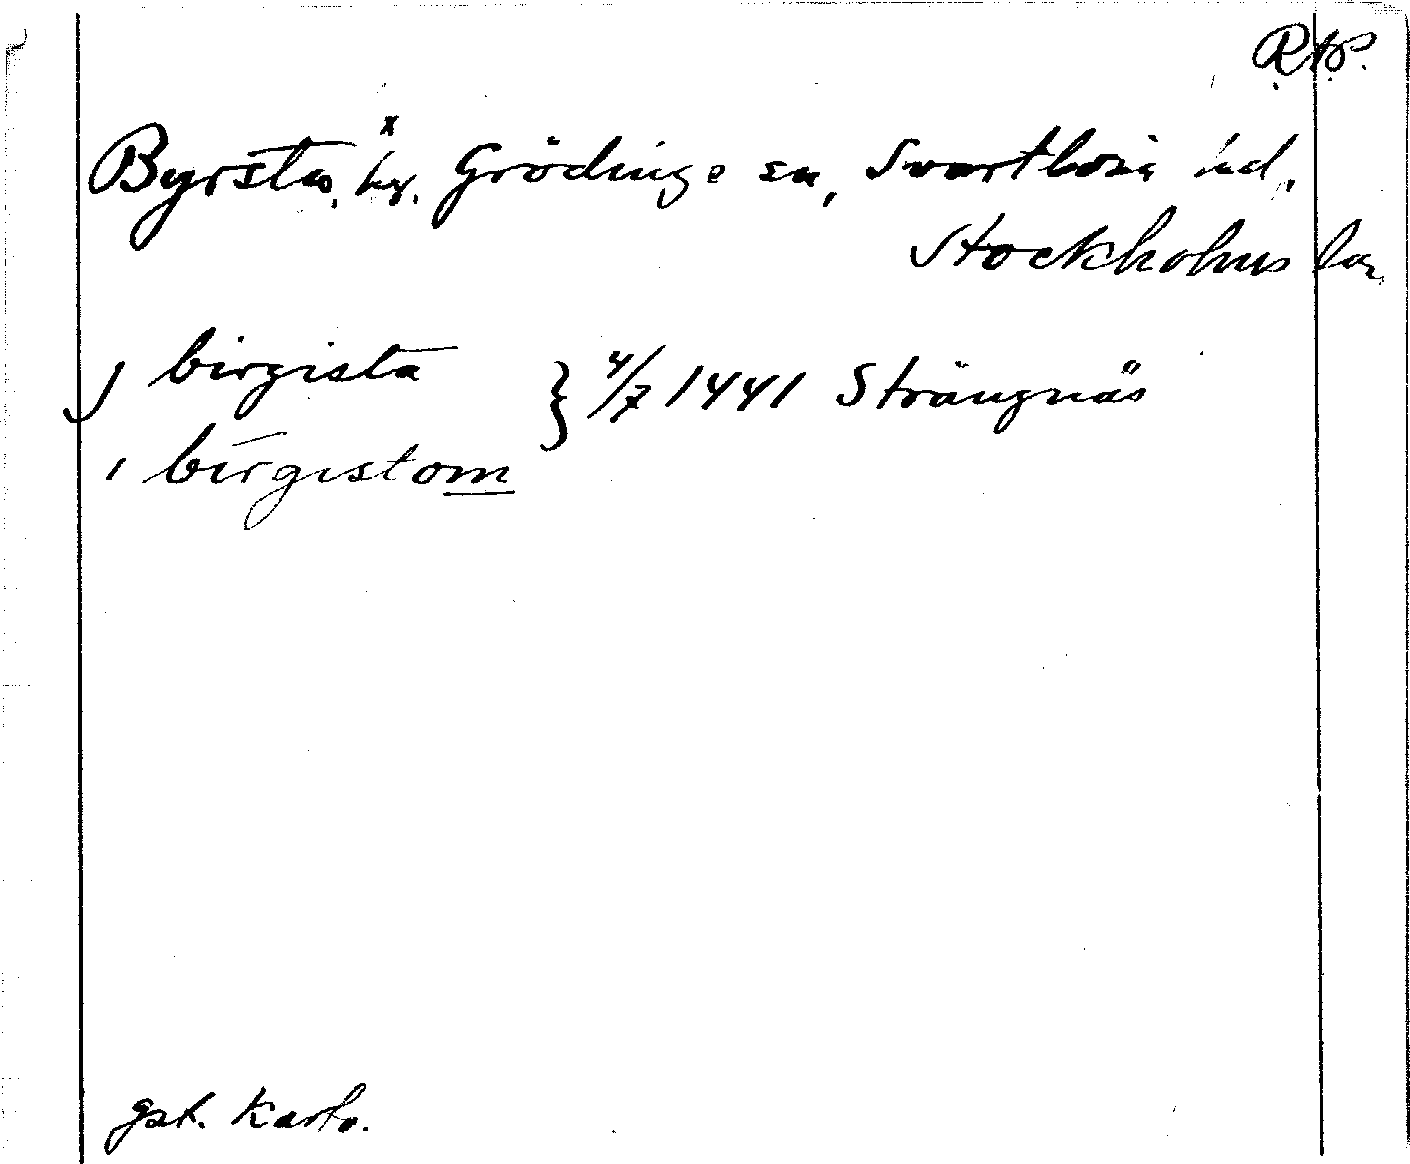 Byrsta, by. Grödinge sn, Svartlösa hd,
Stockholms län
j birgista
} 4/7 1441 Strängnäs
i birgistom
gst. Karto.